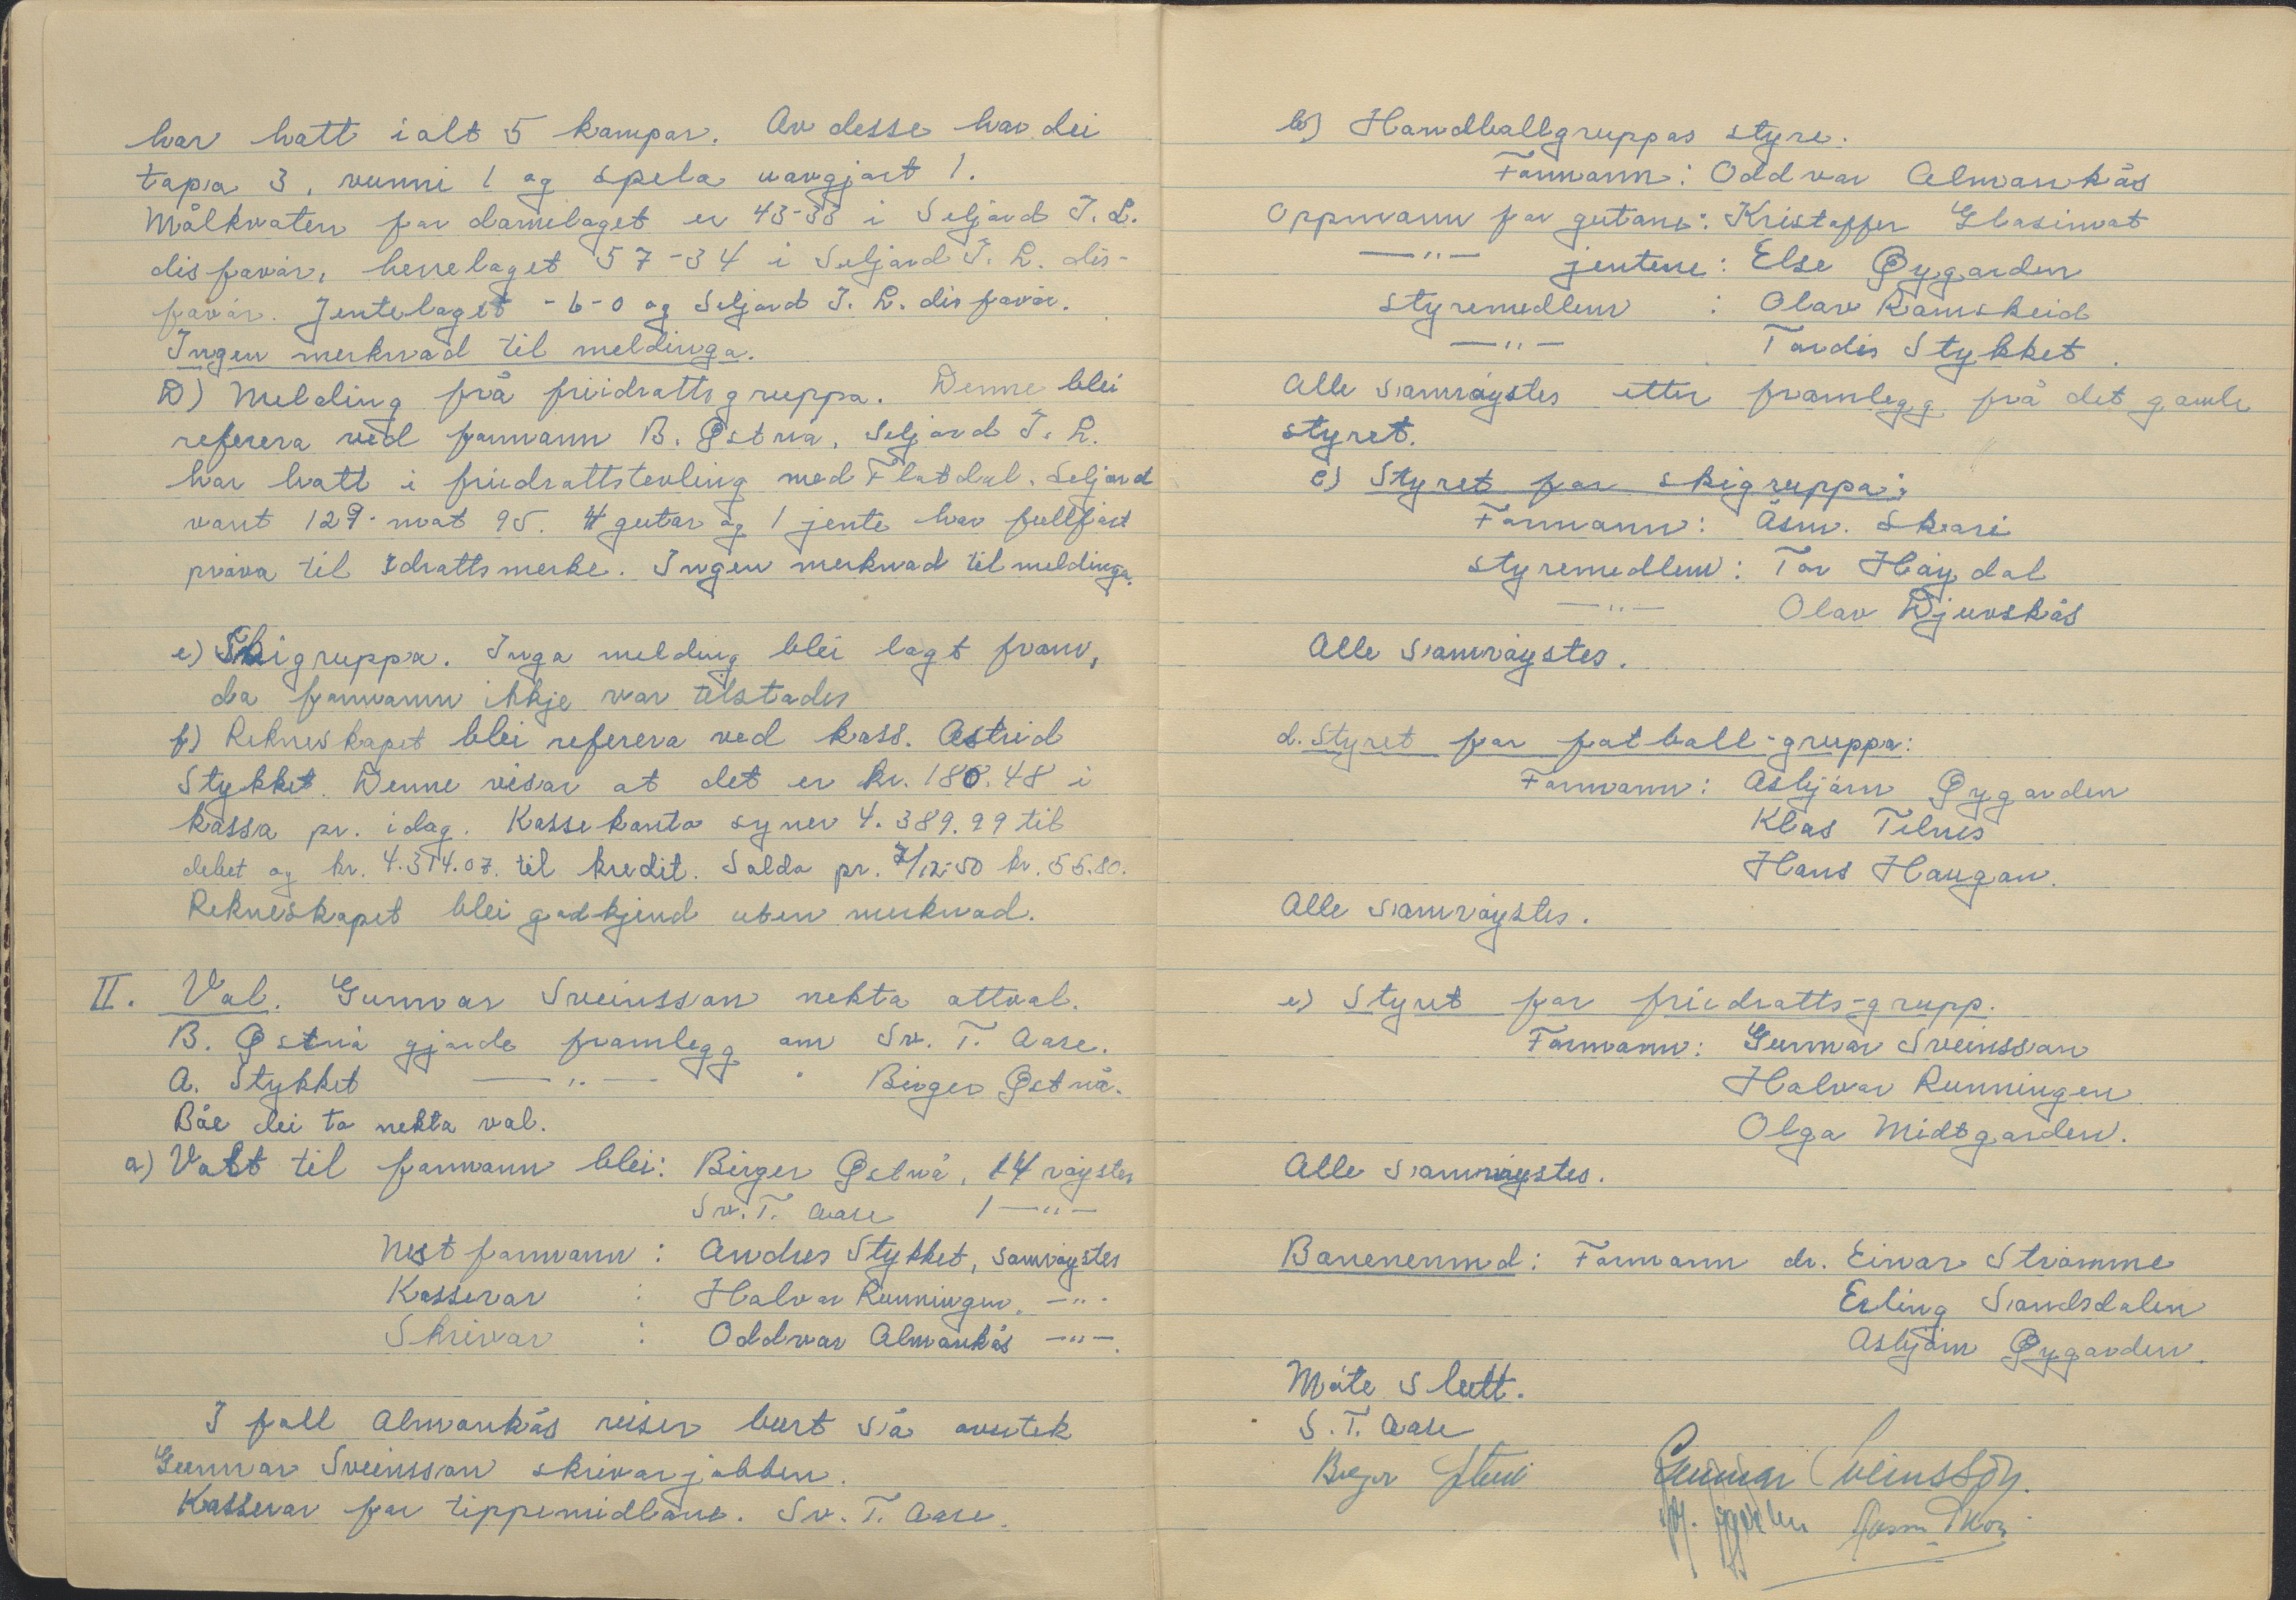 har hatt ialt 5 kampar. Av desse har dei
tapa 3, vunni 1 og spela uavgjort 1.
Målkvoten for damelaget er 43-33 i Seljord I. L.
disfavør, herrelaget 57-34 i Seljord I. L. dis-
favør. Jentelaget -6-0 og Seljord I. L. disfavør.
Ingen merknad til meldinga.
D) Melding frå friidrottsgruppa. Denne blei
referera ved formann B. Østnå, Seljord I. L.
har hatt i friidrottstevling med Flatdal. Seljord
vant 129 mot 95. 4 gutar og 1 jente har fullført
prøva til Idrottsmerke. Ingen merknad til meldinga.
e) Skigruppa. Inga melding blei lagt fram,
da formann ikkje var tilstades
f) Rekneskapet blei referera ved kass. Astrid
Stykket. Denne visar at det er kr. 180.48 i
kassa pr. idag. Kassekonto syner 4.389.99 til
debet og kr. 4.314.07. til kredit. Saldo pr. 7/12-50 kr. 55.80.
Rekneskapet blei godkjend uten merknad.
II. Val. Gunnar Sveinsson nekta attval.
B. Østnå gjorde framlegg om Sv. T. Aase.
A. Stykket —"— " Birger Østnå.
Båe dei to nekta val.
a) Valt til formann blei: Birger Østnå, 14 røyster
Sv. T. Aase 1 —"—
Nestformann : Andres Stykket, samrøystes
Kasserar : Halvor Runningen. —"—
Skrivar : Oddvar Almankås —"—.
I fall Almankås reiser burt så overtek
Gunnar Sveinsson skrivarjobben.
Kasserar for tippemidlane. Sv. T. Aase.
b) Handballgruppas styre.
Formann: Oddvar Almankås
Oppmann for gutane: Kristoffer Glasimot
—"— jentene: Else Øygarden
Styremedlem : Olav Ramskeid
—"— Tordis Stykket.
Alle samrøystes etter framlegg frå det gamle
styret.
c) Styret for skigruppa:
Formann: Åsm. Skori
Styremedlem: Tor Høydal
—"— Olav Djuvskås
Alle samrøystes.
d. Styret for fotball-gruppa:
Formann: Asbjørn Øygarden
Klas Tilnes
Hans Haugan.
Alle samrøystes.
e) Styret for friidrotts-grupp.
Formann: Gunnar Sveinsson
Halvor Runningen
Olga Midtgarden.
Alle samrøystes.
Banenemnd: Formann dr. Einar Strømme
Erling Sandsdalen
Asbjørn Øygarden.
Møte slutt.
S. T. Aase
Birger Gunnar Sveinsson.
Aasm Skori